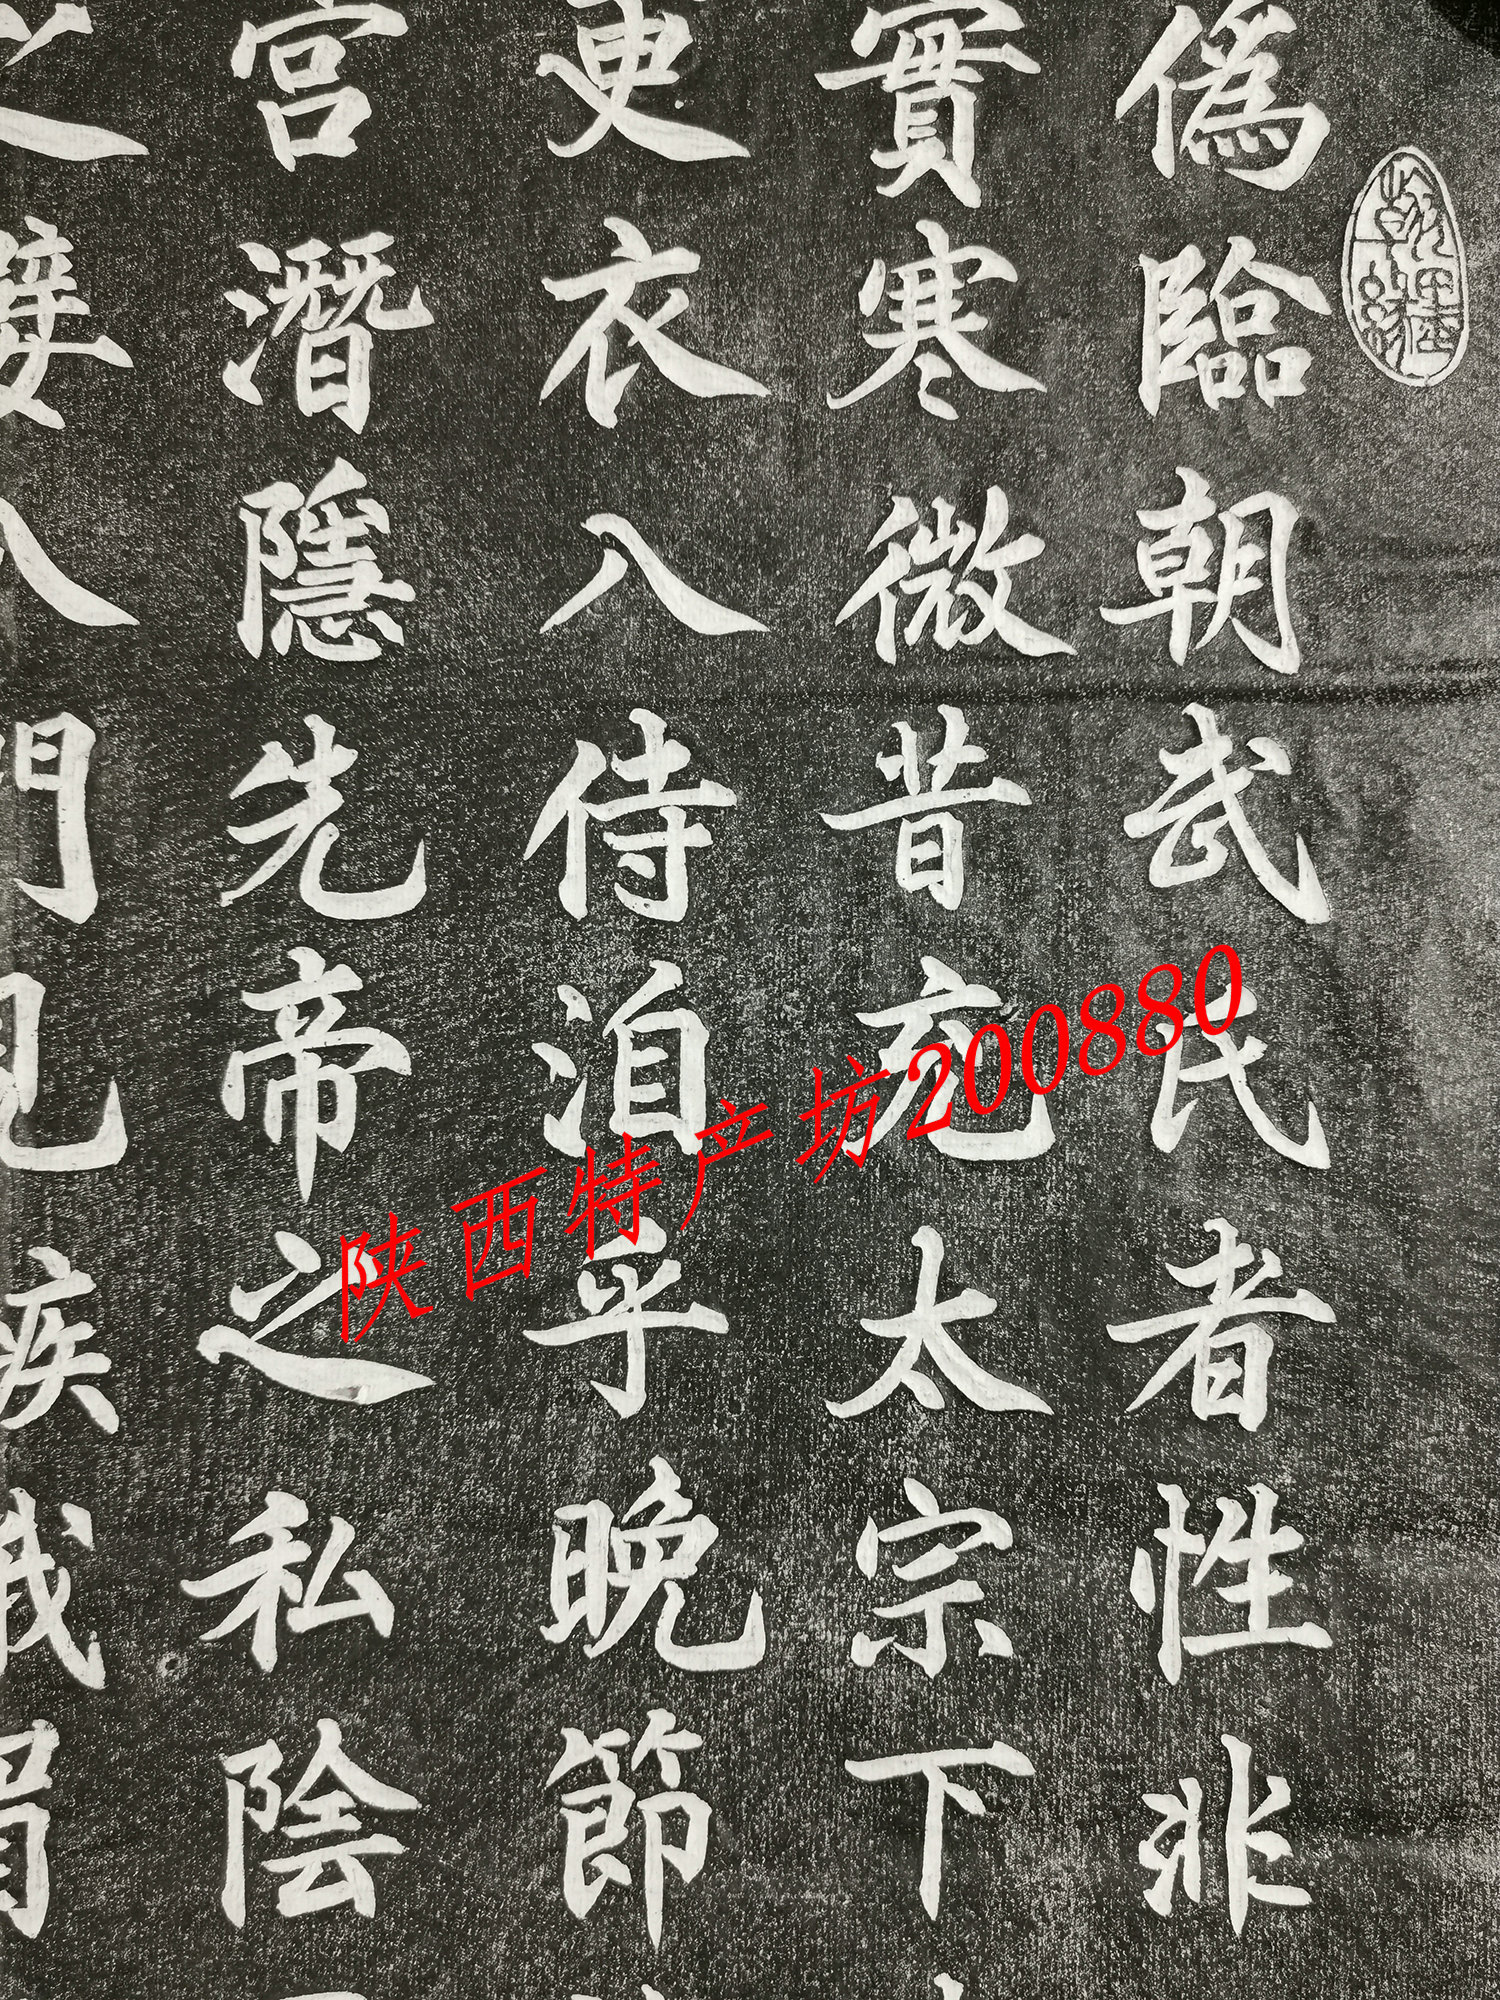 偽臨朝武氏者性非
實寒微昔充太宗下
更衣入侍洎乎晚節
宮潛隱先帝之私陰
之
門見疾
陕西特产坊200880